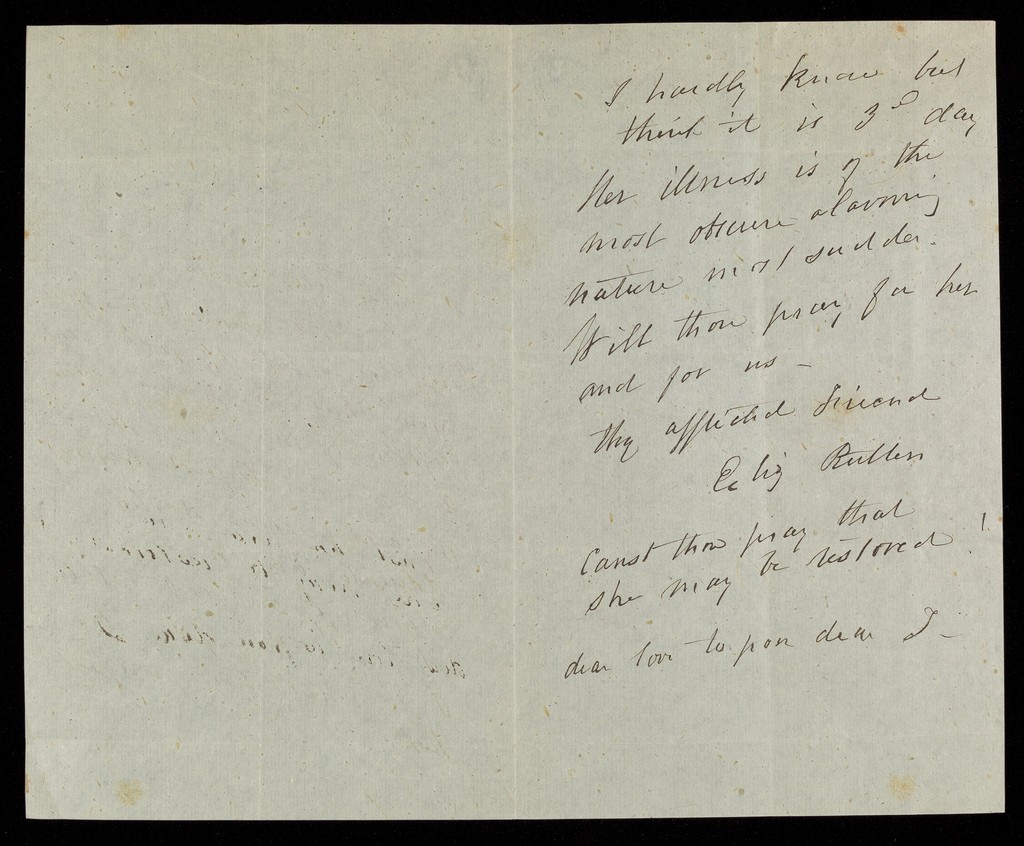 I hardly know but
think it is 3d day
Her illness is of the
most obscure alarming
nature most sudden.
Will thou pray for her
and for us -
thy afflicted friend
Eliz
Canst thou pray that
she may be restored!
dear love to poor dear J -